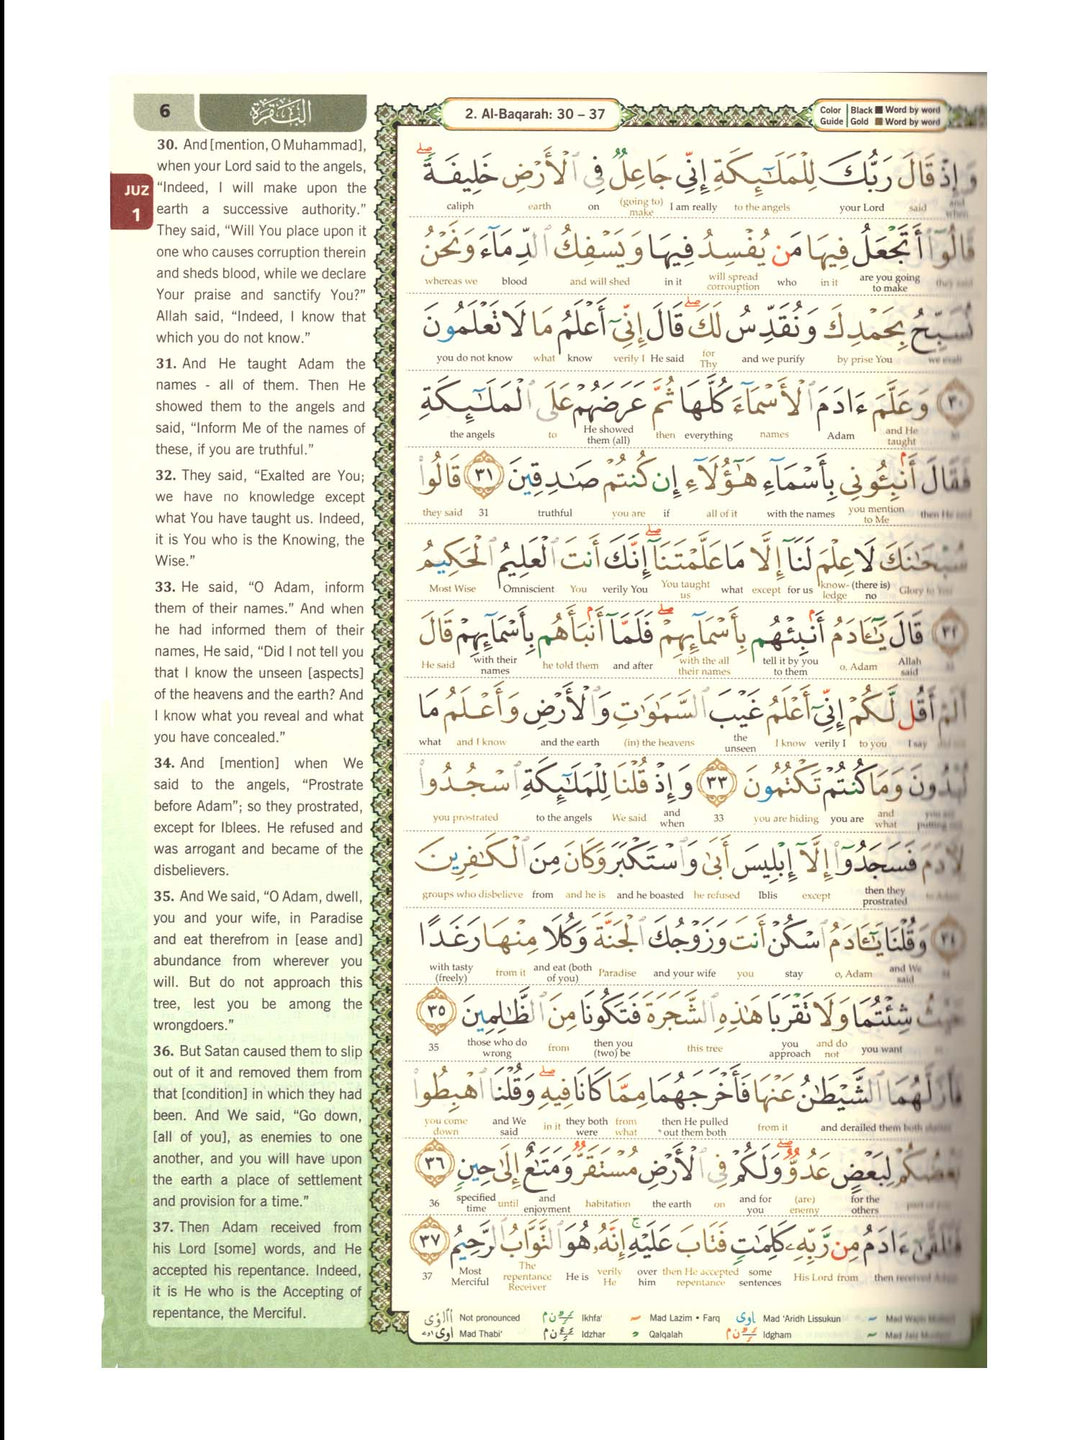 6
البقرة
2. Al-Baqarah: 30 – 37
Color Guide
Black Word by word
Gold Word by word
JUZ 1
30. And [mention, O Muhammad],
when your Lord said to the angels,
“Indeed, I will make upon the
earth a successive authority.”
They said, “Will You place upon it
one who causes corruption therein
and sheds blood, while we declare
Your praise and sanctify You?”
Allah said, “Indeed, I know that
which you do not know.”
31. And He taught Adam the
names - all of them. Then He
showed them to the angels and
said, “Inform Me of the names of
these, if you are truthful.”
32. They said, “Exalted are You;
we have no knowledge except
what You have taught us. Indeed,
it is You who is the Knowing, the
Wise.”
33. He said, “O Adam, inform
them of their names.” And when
he had informed them of their
names, He said, “Did I not tell you
that I know the unseen [aspects]
of the heavens and the earth? And
I know what you reveal and what
you have concealed.”
34. And [mention] when We
said to the angels, “Prostrate
before Adam”; so they prostrated,
except for Iblees. He refused and
was arrogant and became of the
disbelievers.
35. And We said, “O Adam, dwell,
you and your wife, in Paradise
and eat therefrom in [ease and]
abundance from wherever you
will. But do not approach this
tree, lest you be among the
wrongdoers.”
36. But Satan caused them to slip
out of it and removed them from
that [condition] in which they had
been. And We said, “Go down,
[all of you], as enemies to one
another, and you will have upon
the earth a place of settlement
and provision for a time.”
37. Then Adam received from
his Lord [some] words, and He
accepted his repentance. Indeed,
it is He who is the Accepting of
repentance, the Merciful.
وَإِذْ قَالَ رَبُّكَ لِلْمَلَـٰٓئِكَةِ إِنِّي جَاعِلٌ فِي ٱلْأَرْضِ خَلِيفَةً ۖ
caliph earth on (going to) make I am really to the angels your Lord said and when
قَالُوٓا۟ أَتَجْعَلُ فِيهَا مَن يُفْسِدُ فِيهَا وَيَسْفِكُ ٱلدِّمَآءَ وَنَحْنُ
whereas we blood and will shed in it will spread corrouption who in it are you going to make they said
نُسَبِّحُ بِحَمْدِكَ وَنُقَدِّسُ لَكَ ۖ قَالَ إِنِّيٓ أَعْلَمُ مَا لَا تَعْلَمُونَ
you do not know what know verily I He said for Thy and we purify by prise You we exalt
٣٠ وَعَلَّمَ ءَادَمَ ٱلْأَسْمَآءَ كُلَّهَا ثُمَّ عَرَضَهُمْ عَلَى ٱلْمَلَـٰٓئِكَةِ
the angels to He showed them (all) then everything names Adam and He taught 30
فَقَالَ أَنۢبِـُٔونِي بِأَسْمَآءِ هَـٰٓؤُلَآءِ إِن كُنتُمْ صَـٰدِقِينَ ٣١ قَالُوا۟
they said 31 truthful you are if all of it with the names you mention to Me then He said
سُبْحَـٰنَكَ لَا عِلْمَ لَنَآ إِلَّا مَا عَلَّمْتَنَآ ۖ إِنَّكَ أَنتَ ٱلْعَلِيمُ ٱلْحَكِيمُ
Most Wise Omniscient You verily You You taught us what except for us know-ledge (there is) no Glory to You
٣٢ قَالَ يَـٰٓـَٔادَمُ أَنۢبِئْهُم بِأَسْمَآئِهِمْ ۖ فَلَمَّآ أَنۢبَأَهُم بِأَسْمَآئِهِمْ قَالَ
He said with their names he told them and after with the all their names tell it by you to them o, Adam Allah said
أَلَمْ أَقُل لَّكُمْ إِنِّيٓ أَعْلَمُ غَيْبَ ٱلسَّمَـٰوَٰتِ وَٱلْأَرْضِ وَأَعْلَمُ مَا
what and I know and the earth (in) the heavens the unseen I know verily I to you I say
تُبْدُونَ وَمَا كُنتُمْ تَكْتُمُونَ ٣٣ وَإِذْ قُلْنَا لِلْمَلَـٰٓئِكَةِ ٱسْجُدُوا۟
you prostrated to the angels We said and when 33 you are hiding you are and what
لِـَٔادَمَ فَسَجَدُوٓا۟ إِلَّآ إِبْلِيسَ أَبَىٰ وَٱسْتَكْبَرَ وَكَانَ مِنَ ٱلْكَـٰفِرِينَ
groups who disbelieve from and he is and he boasted he refused Iblis except then they prostrated to Adam
٣٤ وَقُلْنَا يَـٰٓـَٔادَمُ ٱسْكُنْ أَنتَ وَزَوْجُكَ ٱلْجَنَّةَ وَكُلَا مِنْهَا رَغَدًا
with tasty (freely) from it and eat (both of you) Paradise and your wife you stay o, Adam and We said
حَيْثُ شِئْتُمَا وَلَا تَقْرَبَا هَـٰذِهِ ٱلشَّجَرَةَ فَتَكُونَا مِنَ ٱلظَّـٰلِمِينَ ٣٥
35 those who do wrong from then you (two) be this tree you approach and do not you want
فَأَزَلَّهُمَا ٱلشَّيْطَـٰنُ عَنْهَا فَأَخْرَجَهُمَا مِمَّا كَانَا فِيهِ ۖ وَقُلْنَا ٱهْبِطُوا۟
you come down and We said in it they both were from what then He pulled out them both from it and derailed them both
بَعْضُكُمْ لِبَعْضٍ عَدُوٌّ ۖ وَلَكُمْ فِي ٱلْأَرْضِ مُسْتَقَرٌّ وَمَتَـٰعٌ إِلَىٰ حِينٍ ٣٦
36 specified time until and enjoyment habitation the earth on and for you (are) enemy for the others
فَتَلَقَّىٰٓ ءَادَمُ مِن رَّبِّهِۦ كَلِمَـٰتٍ فَتَابَ عَلَيْهِ ۚ إِنَّهُۥ هُوَ ٱلتَّوَّابُ ٱلرَّحِيمُ ٣٧
37 Most Merciful The repentance Receiver He is verily He over him then He accepted repentance some sentences His Lord from then received Adam
Not pronounced Ikhfa' Mad Lazim • Farq Mad 'Aridh Lissukun Mad Wajib
Mad Thabi' Idzhar Qalqalah Idgham Mad Jaiz